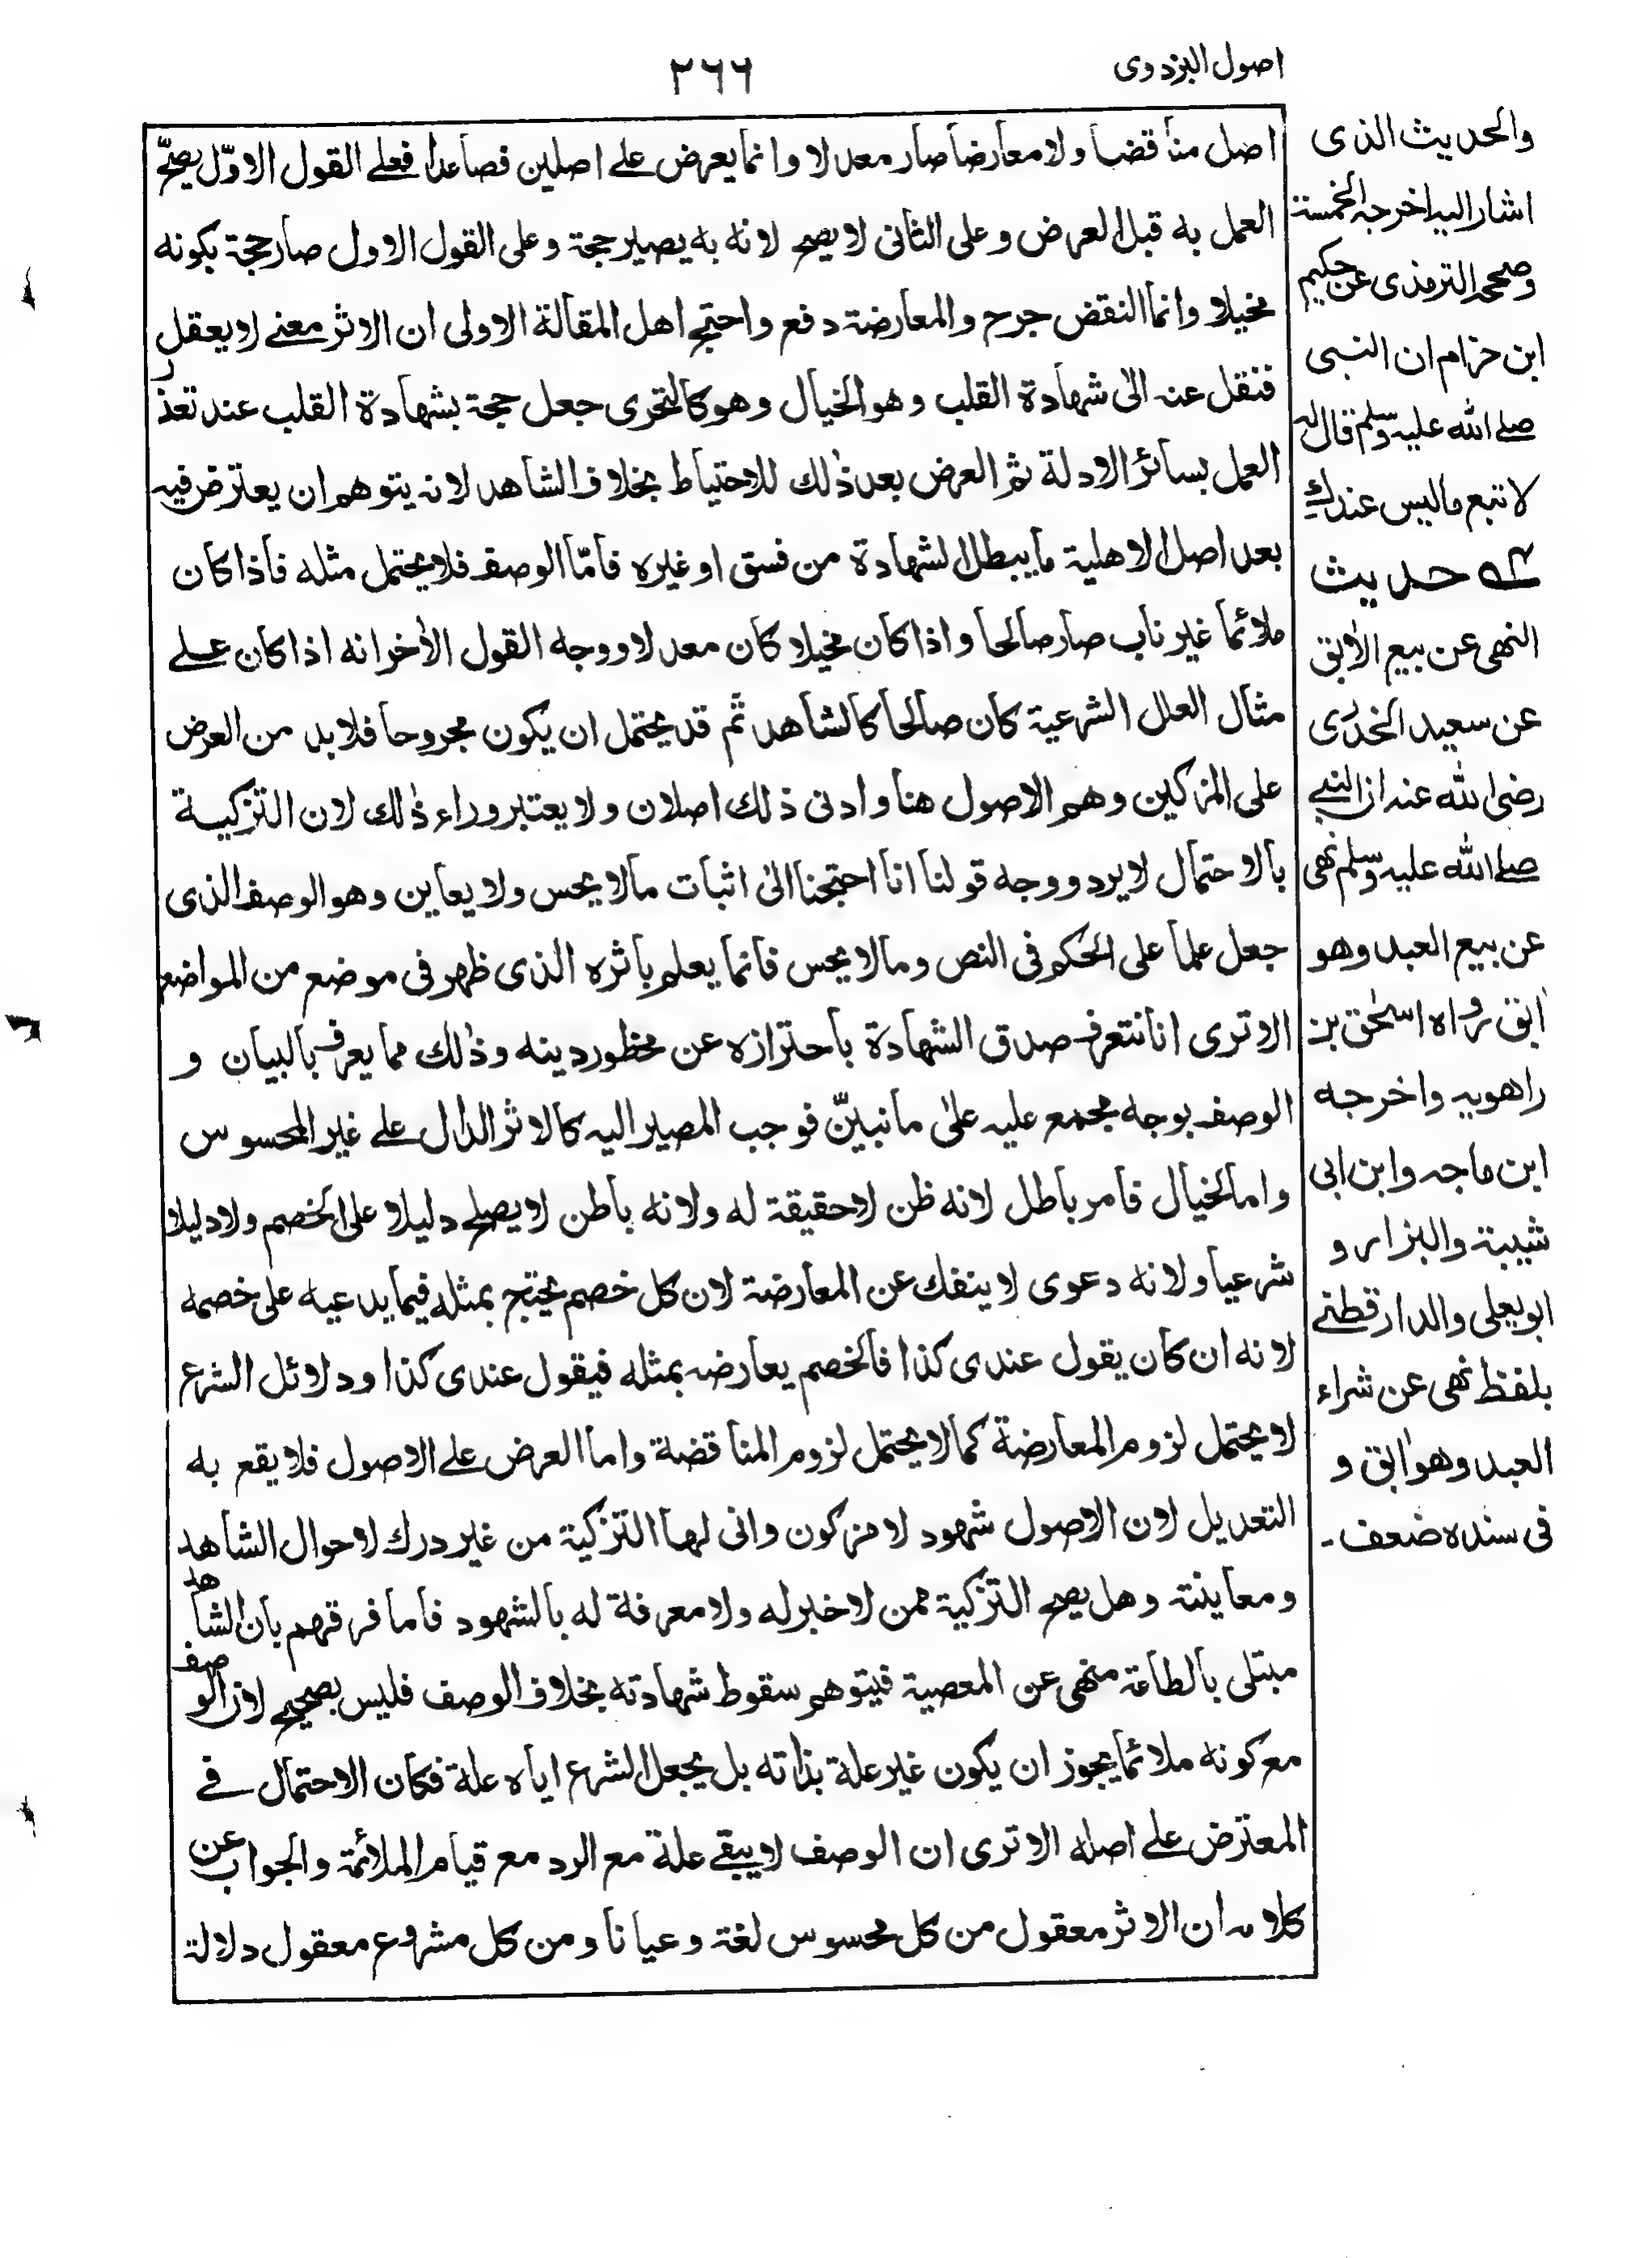 اصول البزدوی
٢٦٦
اصل مناقضا ولا معارضا صار معدلا وانما يعرض علے اصلين فصاعدا فعلے القول الاوّل يصحّ
العمل به قبل العرض وعلى الثانى لا يصح لانه به يصير حجة وعلى القول الاول صار حجة بكونه
مخيلا وانما النقض جرح والمعارضة دفع واحتج اهل المقالة الاولى ان الاثر معنے لا يعقل
فنقل عنه الىٰ شهادة القلب وهو الخيال وهو كالتحرى جعل حجة بشهادة القلب عند تعذر
العمل بسائر الادلة ثم العرض بعد ذٰلك للاحتياط بخلاف الشاهد لانه يتوهم ان يعترض فيه
بعد اصل الاهلية ما يبطل الشهادة من فسق او غيره فامّا الوصف فلا يحتمل مثله فاذا كان
ملائما غير ناب صار صالحا واذا كان مخيلا كان معدلا ووجه القول الاٰخر انه اذا كان علے
مثال العلل الشرعية كان صالحا كالشاهد ثم قد يحتمل ان يكون مجروحا فلا بد من العرض
على المزكين وهم الاصول هنا وادنى ذلك اصلان ولا يعتبر وراء ذٰلك لان التزكية
بالاحتمال لا يرد ووجه قولنا انا احتجنا الىٰ اثبات مالا يحس ولا يعاين وهو الوصف الذى
جعل علما على الحكم فى النص ومالا يحس فانما يعلم باثره الذى ظهر فى موضع من المواضع
الا ترى انا نتعرف صدق الشهادة باحترازه عن محظور دينه وذٰلك مما يعرف بالبيان و
الوصف بوجه مجمع عليه علىٰ ما نبينّ فوجب المصير اليه كالاثر الدال علے غير المحسوس
واما الخيال فامر باطل لانه ظن لا حقيقة له ولانه باطن لا يصلح دليلا على الخصم ولا دليلا
شرعيا ولانه دعوى لا ينفك عن المعارضة لان كل خصم يحتج بمثله فيما يدعيه على خصمه
لانه ان كان يقول عندى كذا فالخصم يعارضه بمثله فيقول عندى كذا ودلائل الشرع
لا يحتمل لزوم المعارضة كمالا يحتمل لزوم المناقضة واما العرض علے الاصول فلا يقع به
التعديل لان الاصول شهود لا مزكون وانى لها التزكية من غير درك لاحوال الشاهد
ومعاينته وهل يصح التزكية ممن لا خبر له ولا معرفة له بالشهود فاما فرقهم بان الشاهد
مبتلى بالطاعة منهى عن المعصية فيتوهم سقوط شهادته بخلاف الوصف فليس بصحيح لان الوصف
مع كونه ملائما يجوز ان يكون غير علة بذاته بل بجعل الشرع اياه علة فكان الاحتمال فے
المعترض علے اصله الا ترى ان الوصف لا يبقے علة مع الرد مع قيام الملائمة والجواب عن
كلامه ان الاثر معقول من كل محسوس لغة وعيانا ومن كل مشروع معقول دلالة
والحديث الذى
اشار اليه اخرجه الخمسة
وصححه الترمذى عن حكيم
ابن حزام ان النبى
صلے الله عليه وسلم قال له
لا تبع ماليس عندك
حديث
النهى عن بيع الاٰبق
عن سعيد الخدرى
رضى الله عنه ان النبے
صلے الله عليه وسلم نهى
عن بيع العبد وهو
اٰبق رواه اسحٰق بن
راهويه واخرجه
ابن ماجه وابن ابى
شيبة والبزار و
ابو يعلى والدارقطنے
بلفظ نهى عن شراء
العبد وهو اٰبق و
فى سنده ضعف ۔